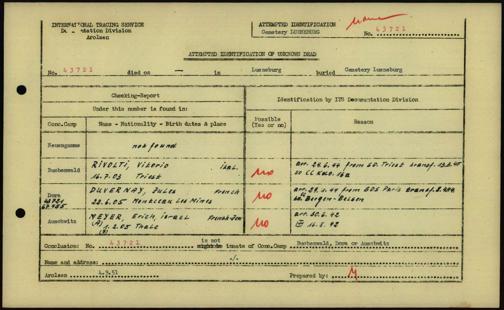 INTERNATIONAL TRACING SERVICE
Documentation Division
Arolsen
ATTEMPTED IDENTIFICATION
Cemetery LUENEBURG
No. 43721
ATTEMPTED IDENTIFICATION OF UNKNOWN DEAD
No. 43721 died on — in Lueneburg buried Cemetery Lueneburg
Checking-Report
Under this number is found in:
Identification by ITS Documentation Division
Conc.Camp
Name - Nationality - Birth dates & place
Possible (Yes or no)
Reason
Neuengamme
not found
Buchenwald
RIVOLTI, Vitorio ital.
16.7.03 Triest
no
arr. 24.6.44 from SD. Triest transf.
zu CC Kdo.
Dora
DUVERNAY, Jules French
22.6.05 Montceau Les Mines
no
arr. 29.1.44 from BDS Paris transf.
Bergen-Belsen
Auschwitz
MEYER, Erich, israel French-Jew
1.2.05 Thale
no
arr. 30.6.42
Conclusion: No. 43721 is not inmate of Conc.Camp Buchenwald, Dora or Auschwitz
Name and address: -/-
Arolsen 4.9.51 Prepared by: